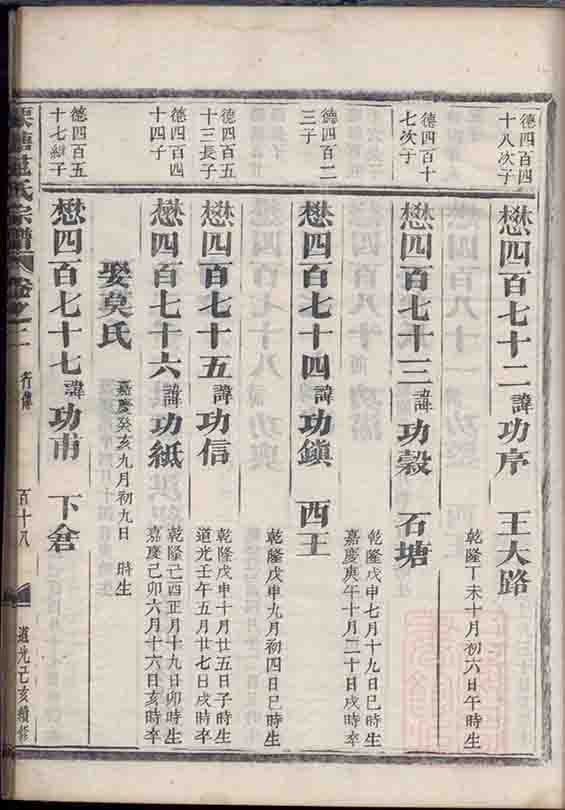 德四百四
十八次子
懋四百七十二 諱功序 王大路
乾隆丁未十月初六日午時生
德四百十
七次子
懋四百七十三 諱功穀 石塘
乾隆戊申七月十九日巳時生
嘉慶庚午十月二十日戌時卒
德四百二
三子
懋四百七十四 諱功鎮 西王
乾隆戊申九月初四日巳時生
德四百五
十三長子
懋四百七十五 諱功信
乾隆戊申十月廿五日子時生
道光壬午五月廿七日戌時卒
德四百四
十四子
懋四百七十六 諱功紙
乾隆己酉正月十九日卯時生
嘉慶己卯六月十六日亥時卒
娶莫氏
嘉慶癸亥九月初九日 時生
德四百五
十七繼子
懋四百七十七 諱功甫 下倉
氏宗譜 卷之二 行傳 百十八 道光己亥續修